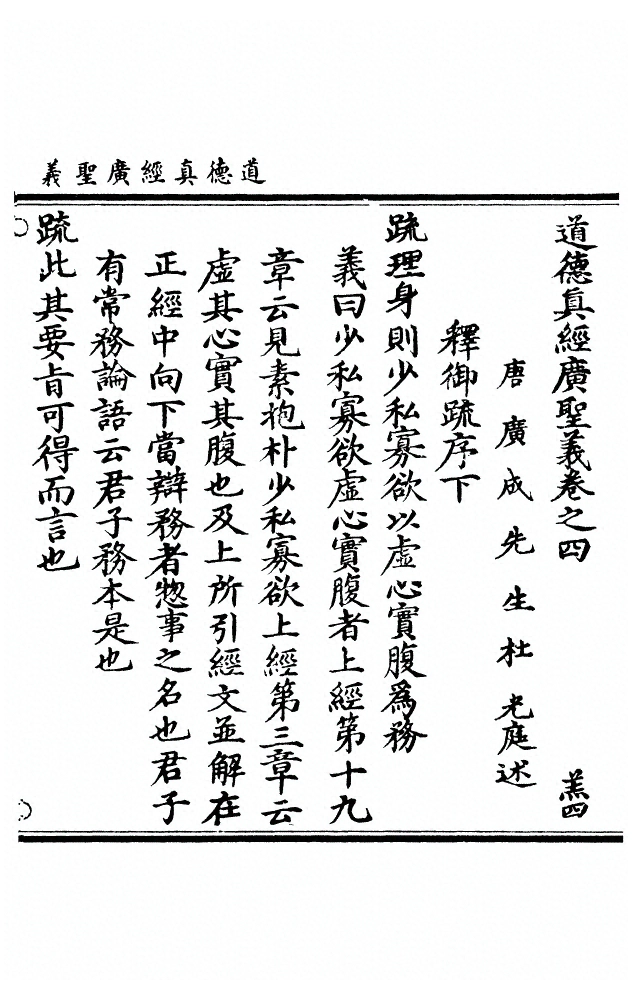 道德真經廣聖義
道德眞經廣聖義卷之四
羔四
唐廣成先生杜光庭述
釋御疏序下
疏理身則少私寡欲以虛心實腹爲務
義曰少私寡欲虛心實腹者上經第十九
章云見素抱朴少私寡欲上經第三章云
虛其心實其腹也及上所引經文並解在
正經中向下當辯務者惣事之名也君子
有常務論語云君子務本是也
疏此其要旨可得而言也